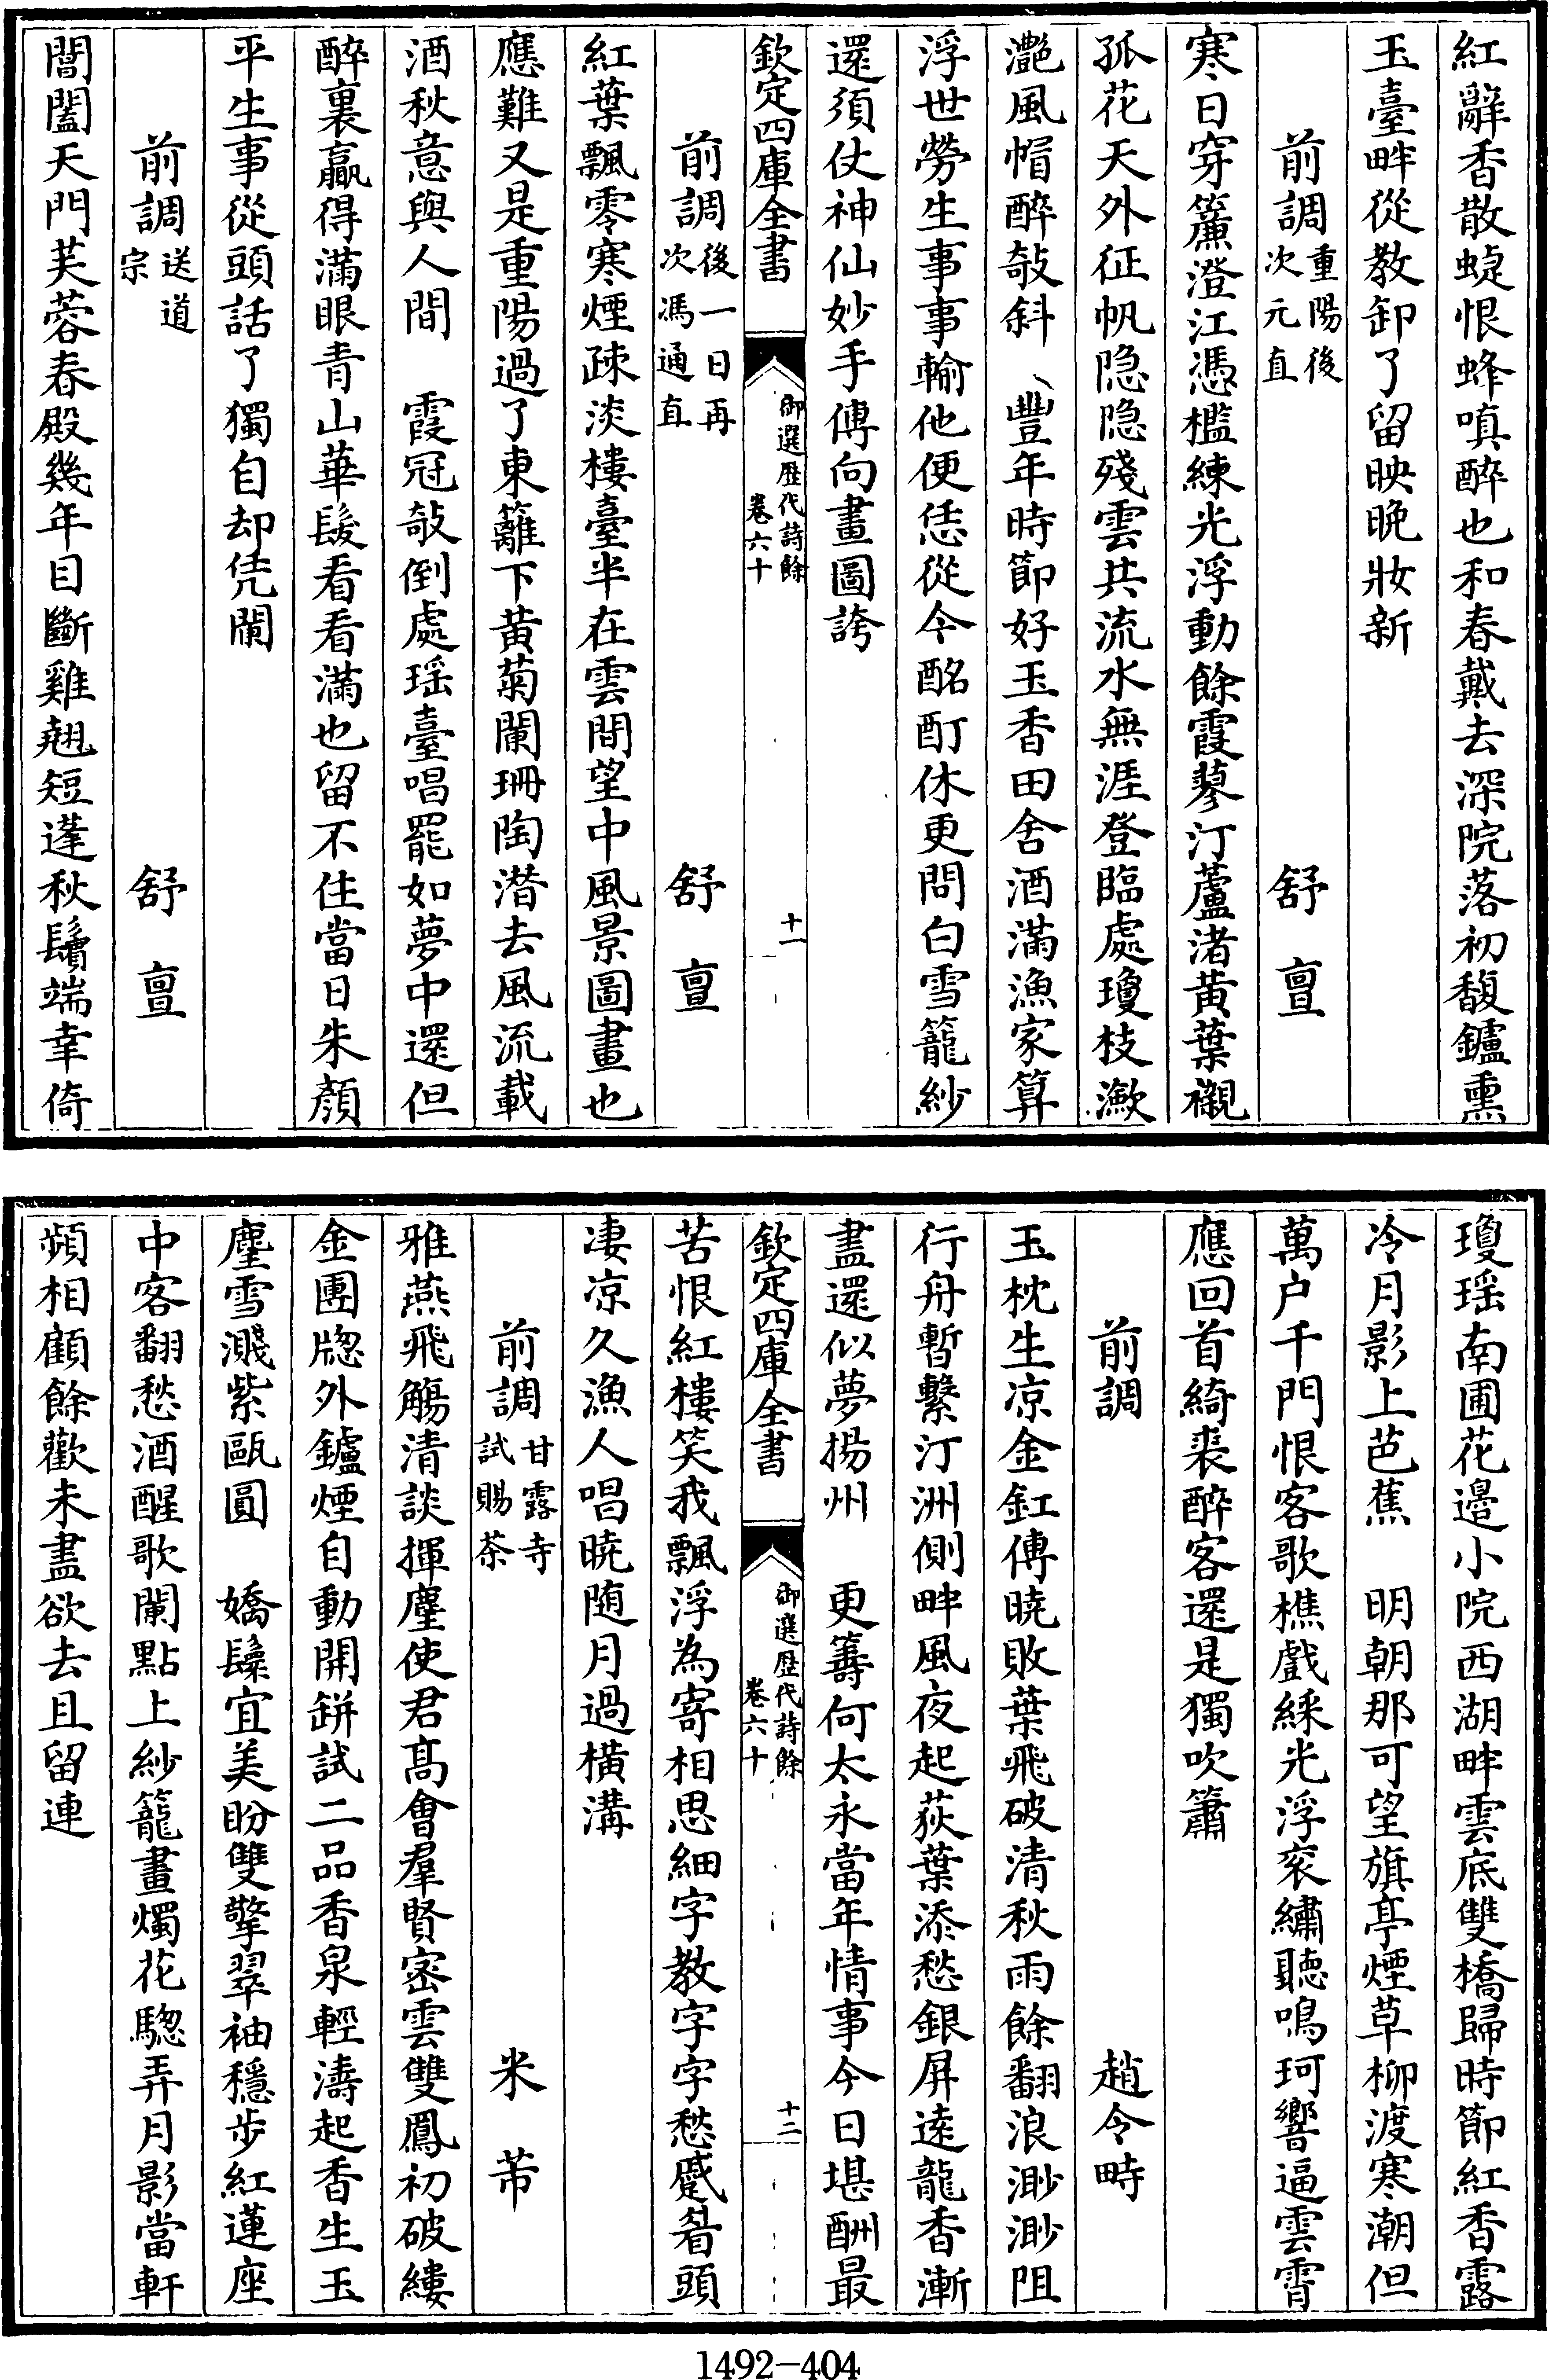 紅辭香散蜨恨蜂嗔醉也和春戴去深院落初馥鑪熏
玉臺畔從教卸了留映晚妝新
前調重陽後次元直　舒亶
寒日穿簾澄江憑檻練光浮動餘霞蓼汀蘆渚黃葉襯
孤花天外征帆隐隐殘雲共流水無涯登臨處瓊枝瀲
灧風帽醉敧斜　豐年時節好玉香田舍酒滿漁家算
浮世勞生事事輸他便恁從今酩酊休更問白雪籠紗
還須仗神仙妙手傳向畫圖誇
欽定四庫全書　御選歷代詩餘卷六十　十一
前調後一日再次馮通直　舒亶
紅葉飄零寒煙疎淡樓臺半在雲間望中風景圖畫也
應難又是重陽過了東籬下黃菊闌珊陶潛去風流載
酒秋意與人間　霞冠敧倒處瑶臺唱罷如夢中還但
醉裏贏得滿眼青山華髮看看滿也留不住當日朱顏
平生事從頭話了獨自却凭闌
前調送道宗　舒亶
閶闔天門芙蓉春殿幾年目斷雞翹短蓬秋鬢端幸倚
瓊瑶南圃花邉小院西湖畔雲底雙橋歸時節紅香露
冷月影上芭蕉　明朝那可望旗亭煙草柳渡寒潮但
萬户千門恨客歌樵戲綵光浮衮繡聽鳴珂響逼雲霄
應回首綺裘醉客還是獨吹簫
前調　趙令畤
玉枕生凉金缸傳曉敗葉飛破清秋雨餘翻浪渺渺阻
行舟暫繫汀洲側畔風夜起荻葉添愁銀屏逺龍香漸
盡還似夢揚州　更籌何太永當年情事今日堪酬最
欽定四庫全書　御選歷代詩餘卷六十　十二
苦恨紅樓笑我飄浮為寄相思細字教字字愁蹙眉頭
凄凉久漁人唱曉随月過橫溝
前調甘露寺試賜茶　米芾
雅燕飛觴清談揮麈使君高會羣賢宻雲雙鳳初破縷
金團牕外鑪煙自動開缾試二品香泉輕濤起香生玉
麈雪濺紫甌圓　嬌鬟宜美盼雙擎翠袖穩步紅蓮座
中客翻愁酒醒歌闌點上紗籠畫燭花驄弄月影當軒
頻相顧餘歡未盡欲去且留連
1492-404